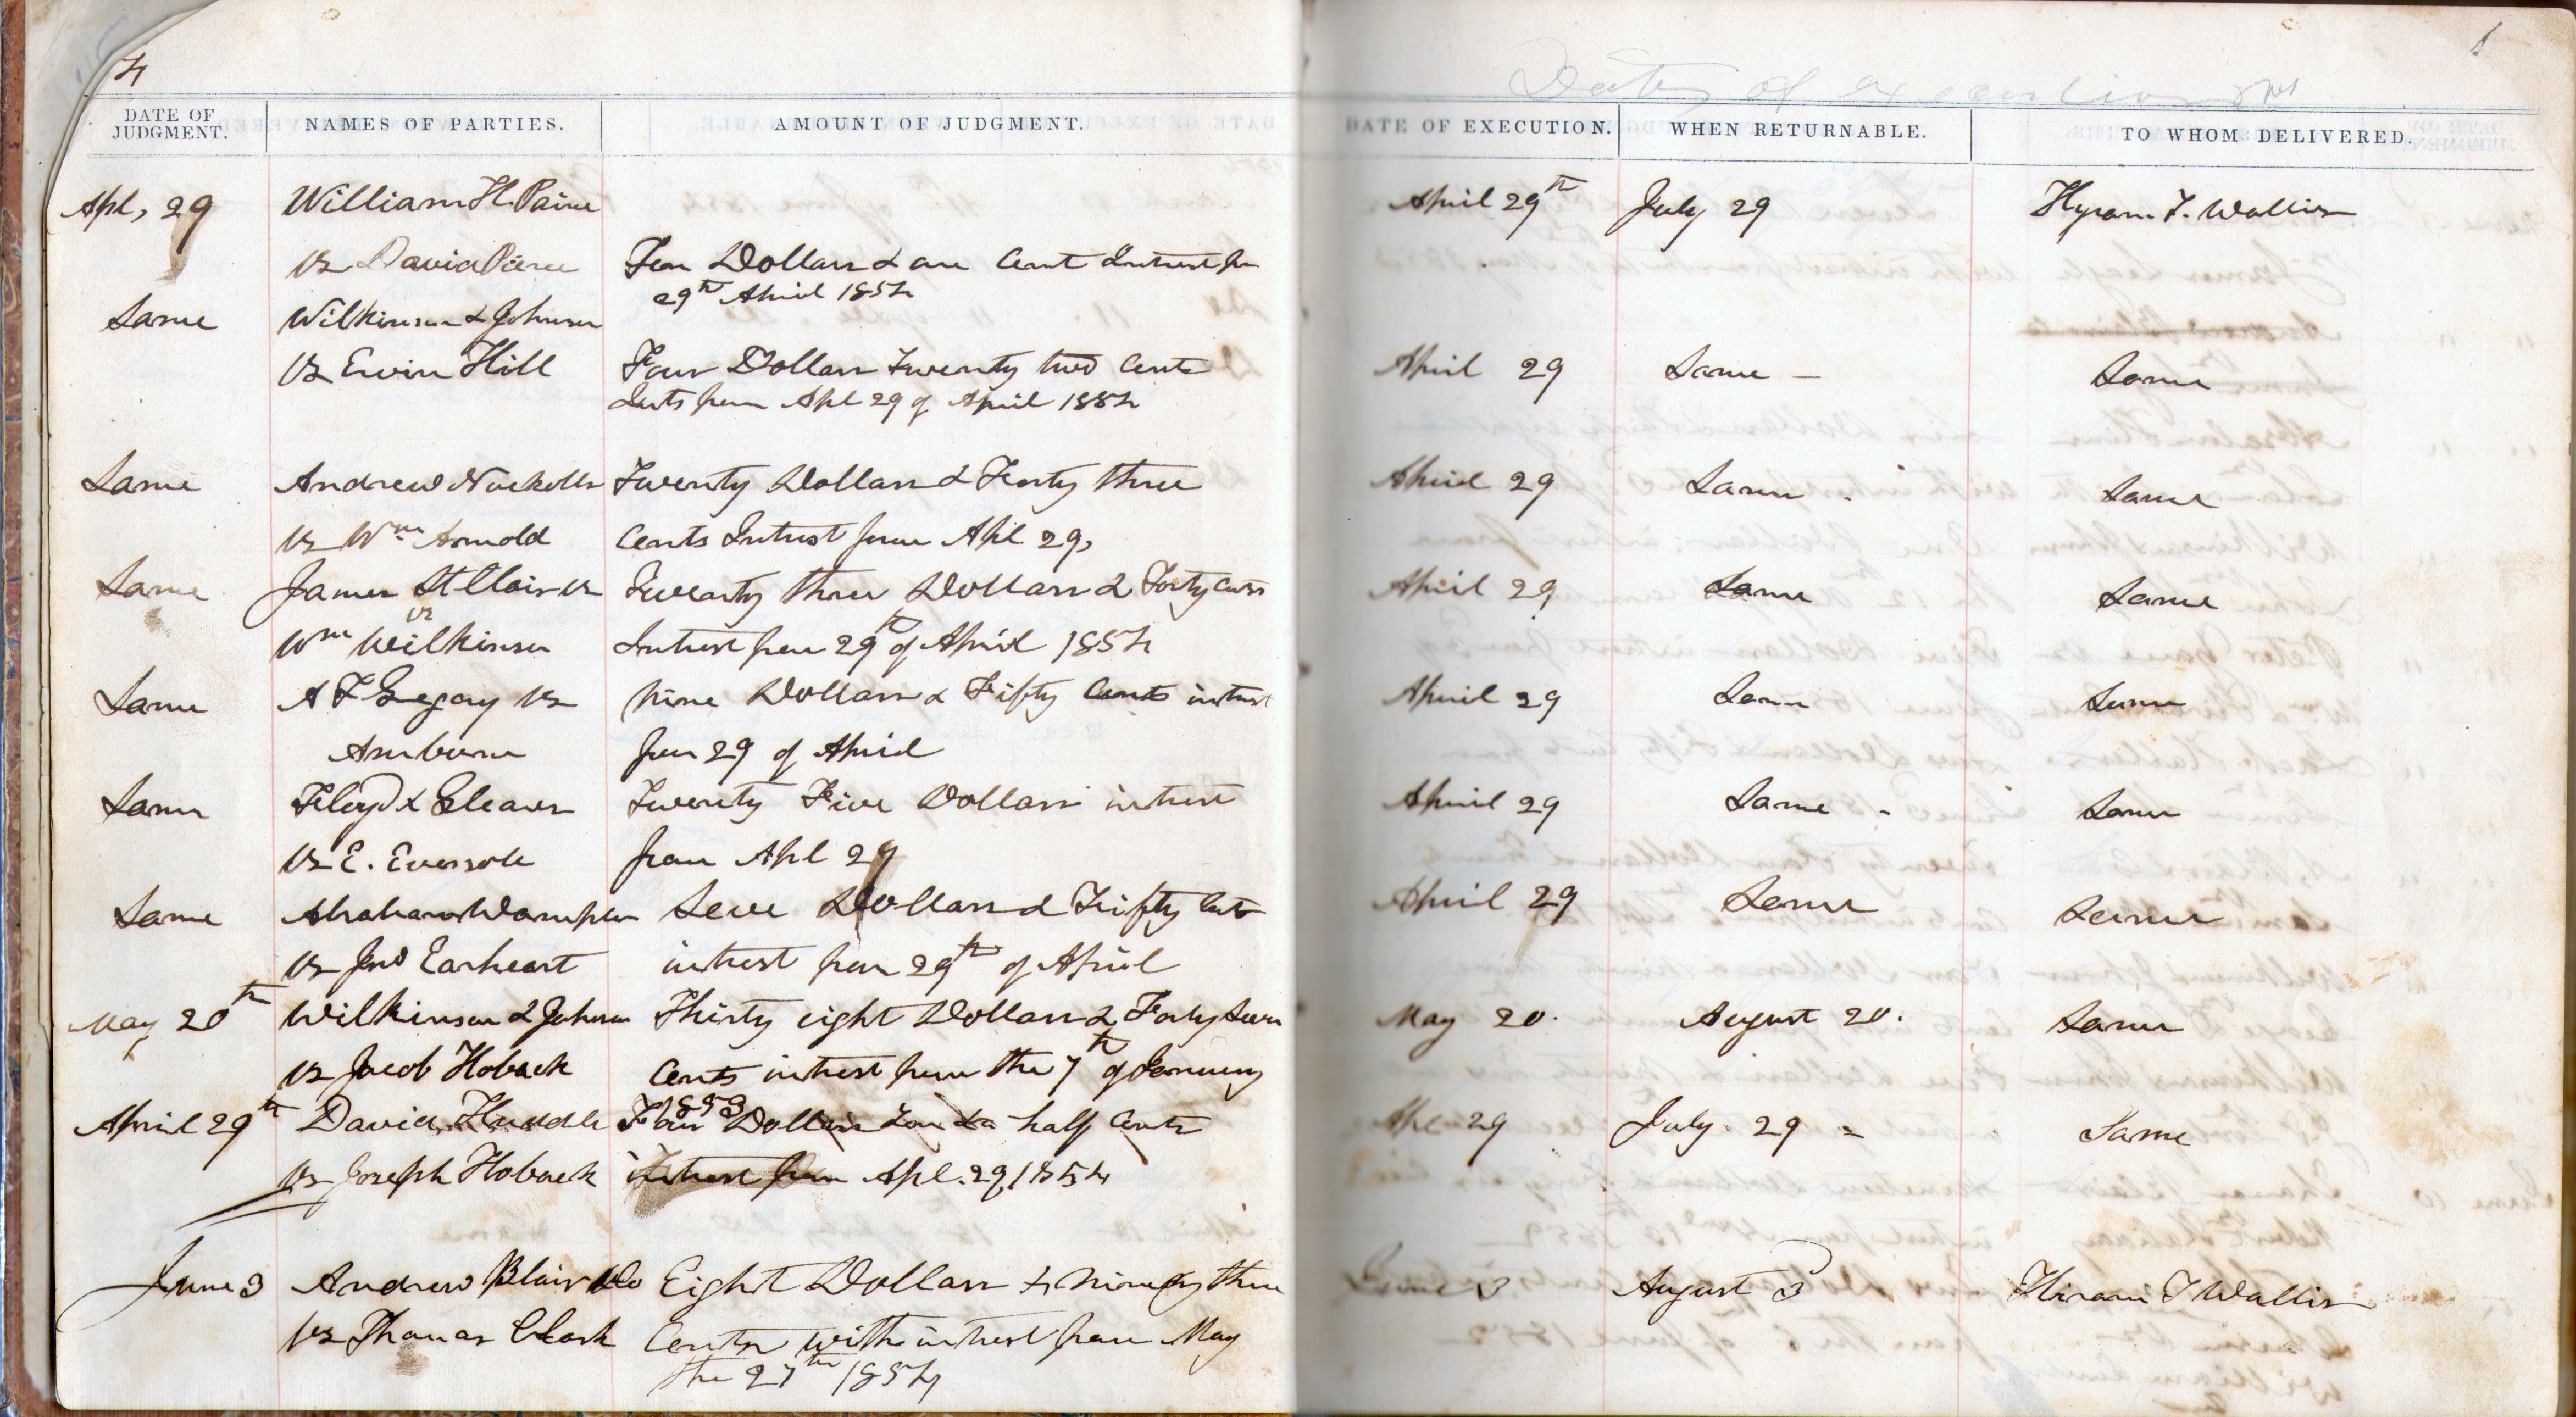 4
Date of executions
DATE OF JUDGMENT. NAMES OF PARTIES. AMOUNT OF JUDGMENT. DATE OF EXECUTION. WHEN RETURNABLE. TO WHOM DELIVERED.
Apl, 29 William H. Paine April 29th July 29 Hyram T. Wallis
vs David Pierce Dollars & one Cent Intrest from
29th April 1854
Same Wilkinson & Johnson
vs Ervin Hill Four Dollars Twenty two Cents April 29 Same Same
Ints from Apl 29 of April 1854
Same Andrew Nuckolls Twenty Dollars & Forty three April 29 Same Same
vs Wm Arnold Cents Intrest from Apl 29,
Same James St Clair vs Twenty three Dollars & Forty Cents April 29 Same Same
vs
Wm Wilkinson Intrest from 29th of April 1854
Same A T Gregory vs Nine Dollars & Fifty Cents intrest April 29 Same Same
from 29 of April
Same Floyd & Cleaves Twenty Five Dollars intrest April 29 Same Same
vs E. Eversole from Apl 29
Same Abraham Wampler Dollars & Fifty Cents April 29 Same Same
vs Jno Earheart intrest from 29th of April
May 20th Wilkinson & Johnson Thirty eight Dollars & Forty Seven May 20. August 20. Same
vs Jacob Hoback Cents intrest from the 7th of January
1853
April 29th David Huddle Four Dollars & a half Cents Apl 29 July 29 Same
vs Joseph Hoback intrest from Apl. 29, 1854
June 3 Andrew Blair & Co Eight Dollars & ninety three June 3 August 3 Hiram T Wallis
vs Thomas Clark Cents with intrest from May
the 27th 1854